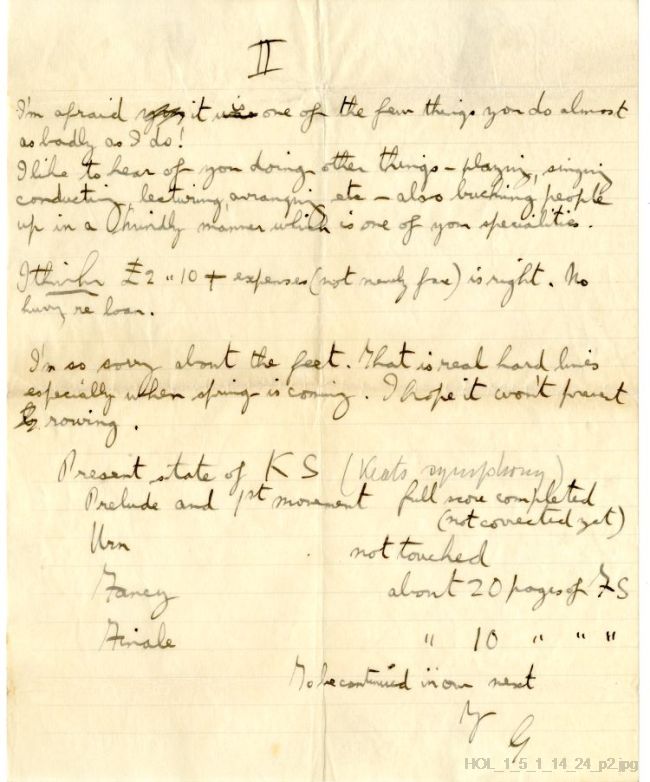 II
I'm afraid it is one of the few things you do almost
as badly as I do!
I like to hear of you doing other things – playing, singing
conducting, lecturing, arranging, etc – also bucking people
up in a kindly manner which is one of your specialities.
I think £2 " 10 + expenses (not merely fare) is right. No
hurry re loan.
I'm so sorry about the feet. That is real hard lines
especially when spring is coming. I hope it won't prevent
rowing.
Present state of K S (Keats symphony)
Prelude and 1st movement full score completed
(not corrected yet)
Urn not touched
Fancy about 20 pages of FS
Finale " 10 " " "
To be continued in our next
Yr
G
HOL_1_5_1_14_24_p2.jpg